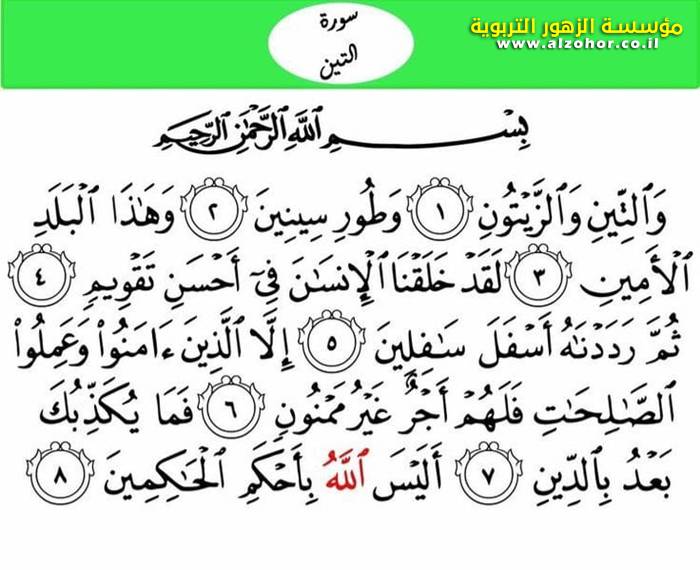 مؤسسة الزهور التربوية
www.alzohor.co.il
سورة
التين
بِسْمِ اللَّهِ الرَّحْمَٰنِ الرَّحِيمِ
وَٱلتِّينِ وَٱلزَّيْتُونِ ١ وَطُورِ سِينِينَ ٢ وَهَٰذَا ٱلْبَلَدِ
ٱلْأَمِينِ ٣ لَقَدْ خَلَقْنَا ٱلْإِنسَٰنَ فِىٓ أَحْسَنِ تَقْوِيمٍ ٤
ثُمَّ رَدَدْنَٰهُ أَسْفَلَ سَٰفِلِينَ ٥ إِلَّا ٱلَّذِينَ ءَامَنُوا۟ وَعَمِلُوا۟
ٱلصَّٰلِحَٰتِ فَلَهُمْ أَجْرٌ غَيْرُ مَمْنُونٍ ٦ فَمَا يُكَذِّبُكَ
بَعْدُ بِٱلدِّينِ ٧ أَلَيْسَ ٱللَّهُ بِأَحْكَمِ ٱلْحَٰكِمِينَ ٨